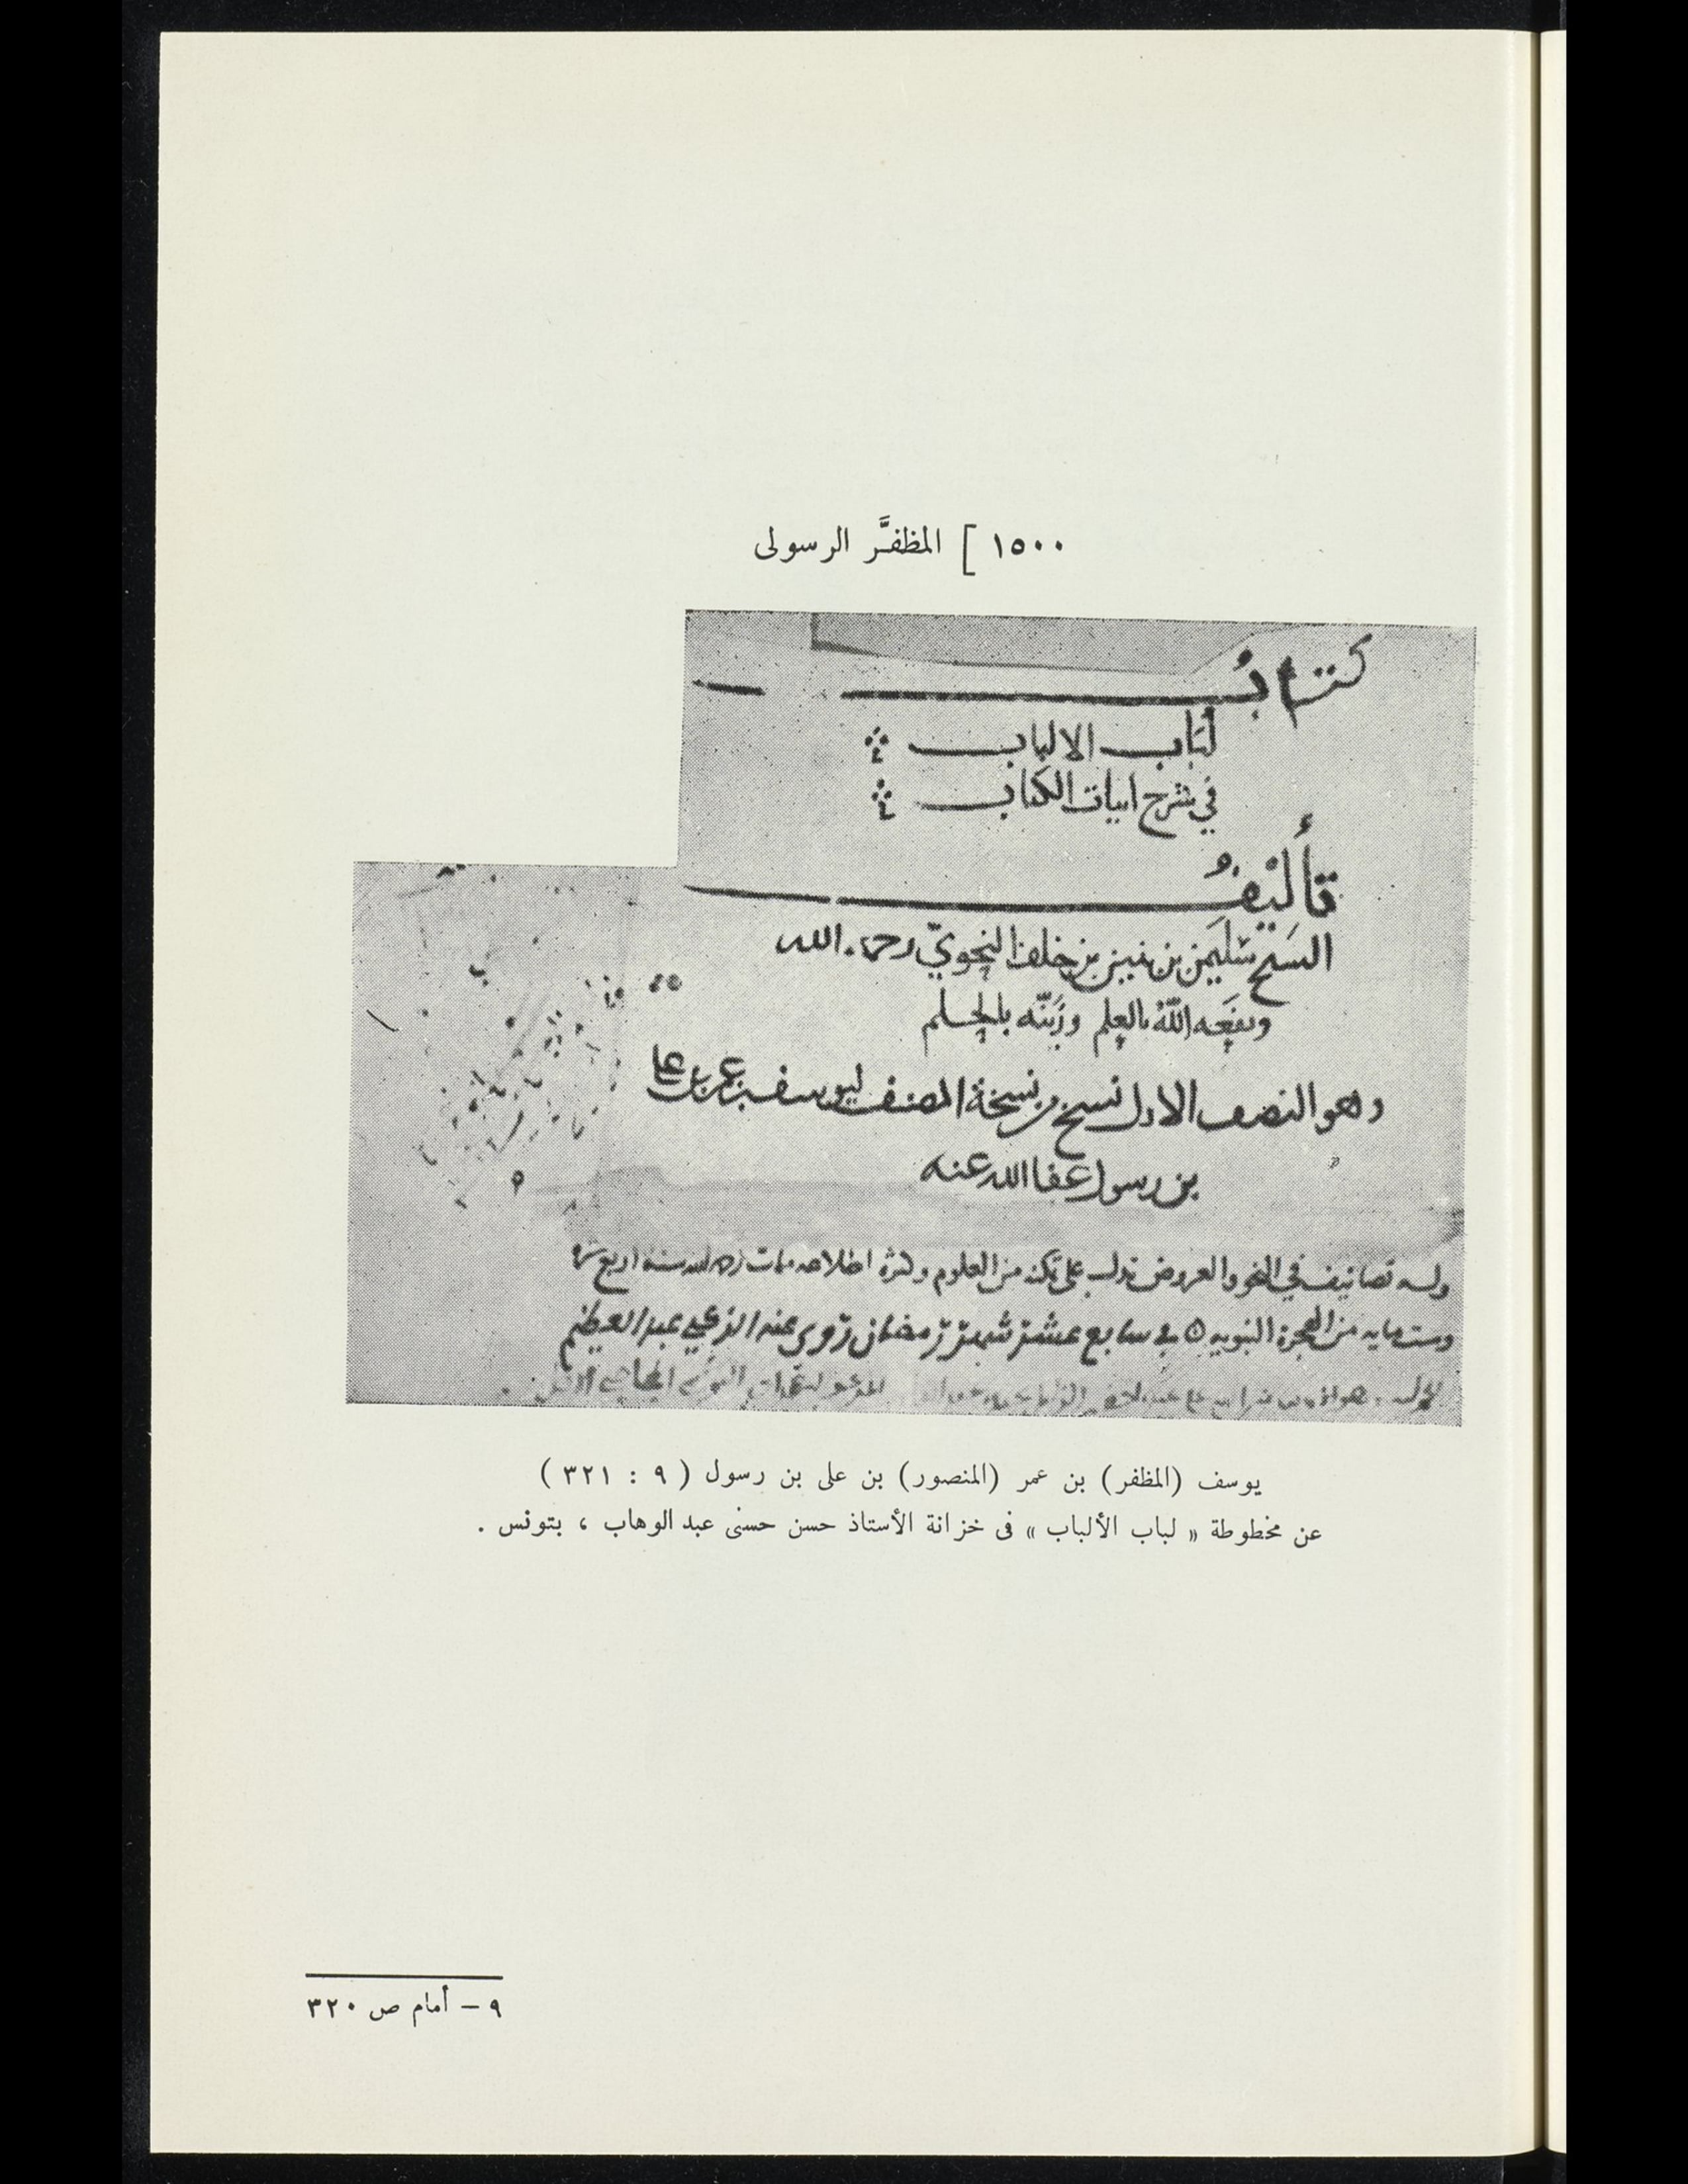 ١٥٠٠ [ المظفَّر الرسولى
كتابُ
لُبَاب الالباب
في شرح ابيات الكتاب
تأليفُ
الشيخ سُليمن بن بنين بن خلف النحويّ رحمه الله
ونفعه اللهُ بالعلم وزيَّنه بالحلم
وهو النصف الاول نسخ من نسخة المصنف ليوسف بن عمر بن على
بن رسول عفا الله عنه
وله تصانيف في النحو والعروض تدل على تمكنه من العلوم وكثرة اطلاعه مات رحمه الله سنة اربع عشرة
وستمايه من الهجرة النبويه في سابع عشر شهر رمضان روى عنه الزكي عبد العظيم
يوسف (المظفر) بن عمر (المنصور) بن على بن رسول ( ٩ : ٣٢١ )
عن مخطوطة « لباب الألباب » فى خزانة الأستاذ حسن حسنى عبد الوهاب ، بتونس .
٩ – أمام ص ٣٢٠